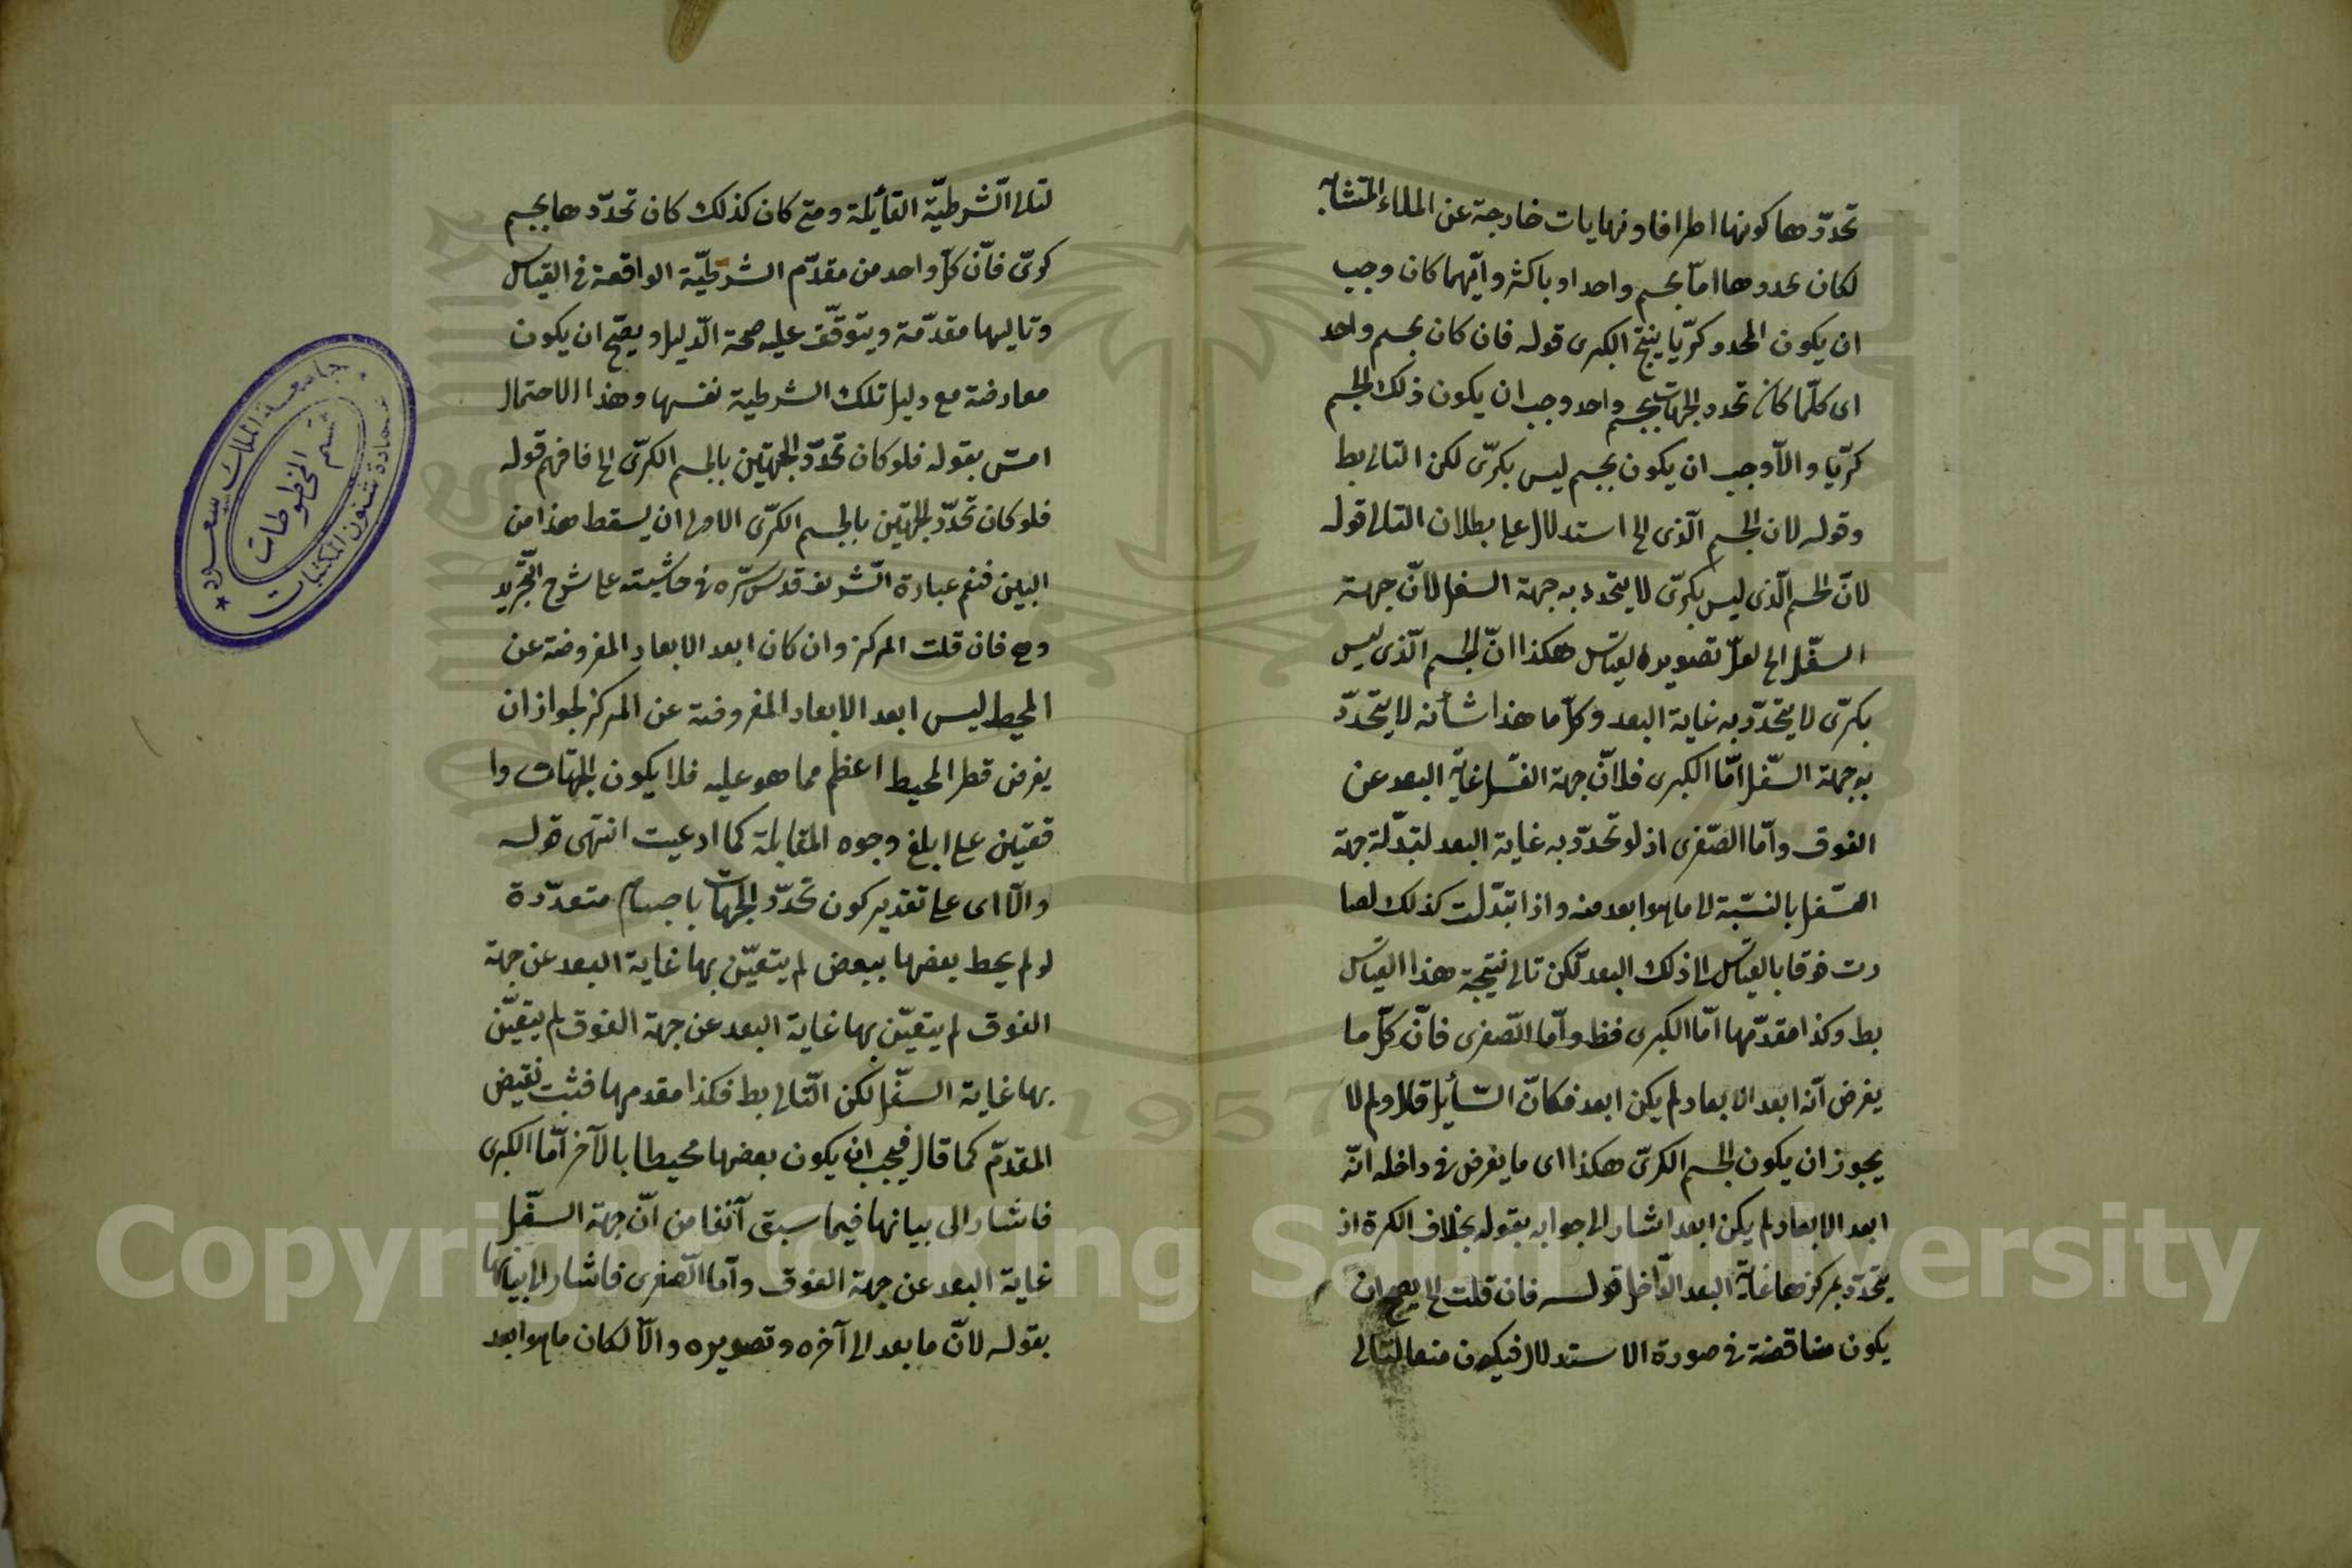 تحدّدها كونها اطرافا ونهايات خارجة عن الملاء المتشابه
لكان تحددها امّا بجسم واحد او باكثر وايّهما كان وجب
ان يكون المحدد كرّيا ينتج الكبرى قوله فان كان بجسم واحد
اى كلّما كان تحدد الجهات بجسم واحد وجب ان يكون ذلك الجسم
كرّيا والّا وجب ان يكون بجسم ليس بكرّى لكن التالى بط
وقوله لان الجسم الّذى الخ استدلال على بطلان التالى قوله
لانّ الجسم الّذى ليس بكرّى لا يتحدد به جهة السفل لانّ جهة
السفّل الخ لعلّ تصويره القياس هكذا انّ الجسم الّذى ليس
بكرّى لا يتحدّد به غاية البعد وكلّ ما هذا شأنه لا يتحدّد
به جهة السّفل امّا الكبرى فلانّ جهة السّفل غاية البعد عن
الفوق وامّا الصّغرى اذ لو تحدّد به غاية البعد لتبدّلة جهة
السّفل بالنسّبة الى ما هوا بعد منه واذا تبدّلت كذلك لصا
رت فوقا بالقياس الى ذلك البعد لكن تالى نتيجة هذا القياس
بط وكذا مقدّمها امّا الكبرى فظ وامّا الصّغرى فانّ كلّ ما
يفرض انّه ابعد الابعاد لم يكن ابعد فكانّ السّأيل قال ولم لا
يجوز ان يكون الجسم الكرّى هكذا اى ما يفرض فى داخله انّه
ابعد الابعاد لم يكن ابعد اشار الى جوابه بقوله بخلاف الكرة اذ
يتحدّد بمركزها غاية البعد الدّاخل قوله فان قلت الخ يصح ان
يكون مناقضة فى صورة الاستدلال فيكون منعا لتالى
لتالى الشّرطيّة القأيلة ومتى كان كذلك كان تحدّدها بجسم
كرىّ فانّ كلّ واحد من مقدّم الشرطيّة الواقعة فى القياس
وتاليها مقدّمة ويتوقّف عليه صحة الدّليل ويصحّ ان يكون
معارضة مع دليل تلك الشرطية نفسها وهذا الاحتمال
امسّ بقوله فلو كان تحدّد الجهتين بالجسم الكرّى الخ فافهم قوله
فلو كان تحدّد الجهتين بالجسم الكرّى الاولى ان يسقط هذا من
البين فنعم عبارة الشّريف قدس سّره فى حاشيته على شرح التجّريد
وهى فان قلت المركز وان كان ابعد الابعاد المفروضة عن
المحيط ليس ابعد الابعاد المفروضة عن المركز لجواز ان
يفرض قطر المحيط اعظم مما هو عليه فلا يكون الجهتان وا
قعتين على ابلغ وجوه المقابلة كما ادعيت انتهى قوله
والّا اى على تقدير كون تحدّد الجهات باجسام متعدّدة
لو لم يحط بعضها ببعض لم يتعيّن بها غاية البعد عن جهة
الفوق لم يتعيّن بها غاية البعد عن جهة الفوق لم يتعيّن
بها غاية السفّل لكن التّالى بط فكذا مقدمها فثبت نقيض
المقدمّ كما قال فيجب ان يكون بعضها محيطا بالآخر امّا الكبرى
فاشار الى بيانها فيما سبق آنفا من انّ جهة السفّل
غاية البعد عن جهة الفوق وامّا الصّغرى فاشار الى بيانها
بقوله لانّ ما بعد الى آخره وتصويره والّا لكان ما هوا بعد
جامعة الملك سعود
عمادة شئون المكتبات
قسم المخطوطات
1957
Copyright © King Saud University